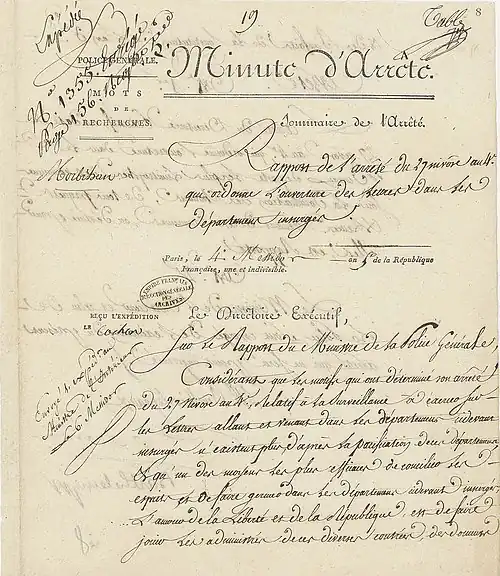 19
8
Table
Expédié
POLICE GÉNÉRALE.
Nº 1335
MOTS
DE
RECHERCHES.
Morbihan
Minute d'Arrêté.
Sommaire de l'Arrêté.
Rapport de l'arrêté du 27 nivose an 4e
qui ordonne l'ouverture des lettres dans les
départemens insurgés.
Paris, le 4 Messidor an 5e de la République
Française, une et indivisible.
EMPIRE FRANÇAIS
DIRECTION GÉNÉRALE
DES
ARCHIVES
REÇU L'EXPÉDITION
LE Cochon
Le Directoire Exécutif,
Sur le Rapport du Ministre de la Police Générale,
Considérant que les motifs qui ont déterminé son arrêté
du 27 Nivose an 4e, relatif à la Surveillance à exercer sur
les Lettres allant et venant dans les départemens cidevant
insurgés n'existent plus d'après la pacification de ces départemens
& qu'un des moyens les plus efficaces de concilier les
esprits et de faire germer dans les départemens cidevant insurgés
l'amour de la Liberté et de la République, est de faire
jouir les administrés de ces diverses contrées des douceurs
Ministre de l'Intérieur
le 6 Messidor